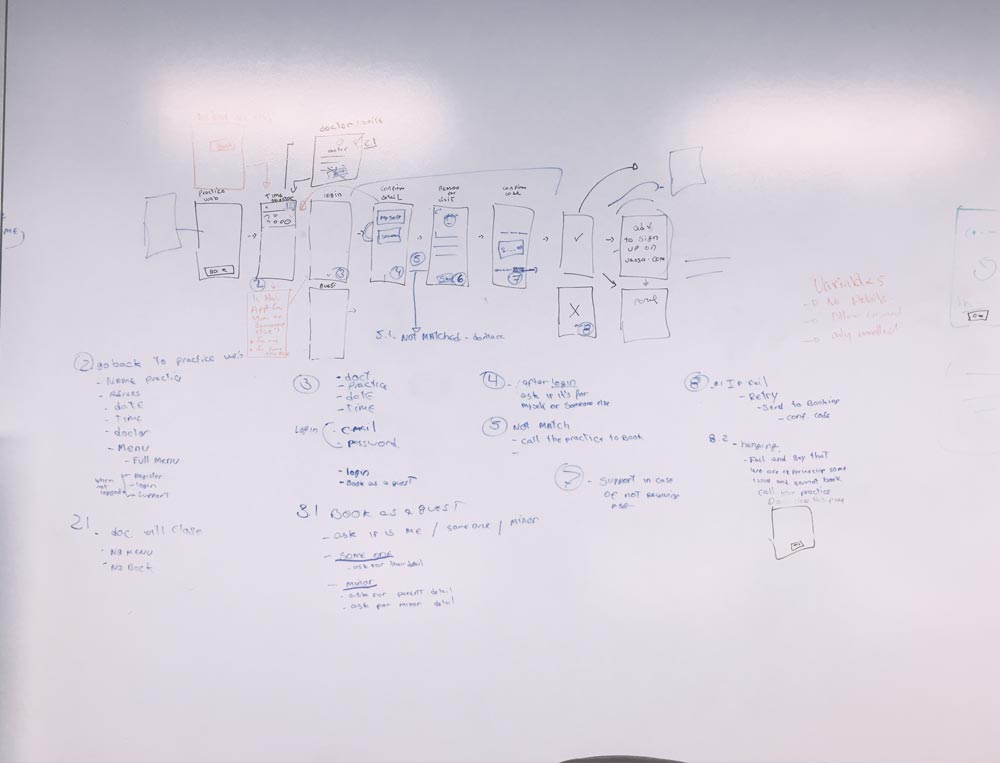 ME)
Doctor
21
practice
web
Book
Time
login
Confirm
detail
myself
Reason
For
visit
Confirm
code
2
3
4
5
6
7
8
Guest
X
adv.
to sign
up on
portal
Is this
App For
You or
Someone
else?
5.1. NOT MATCHED
Variables
- No Details
- only enrolled
2 go back To practice web
- Name practice
- Adress
- date
- Time
- doctor
- Menu
- Full Menu
when
not
logged
- Register
- login
- Support
21
- doc. will Close
- No MENU
- No Back
3
- doct
- practice
- date
- Time
login
- email
- password
- login
- Book as a guest
3.1 Book as a guest
- ask if is me / someone / minor
- some one
- ask for their detail
- minor
- ask for parent detail
- ask for minor detail
4 - after login
ask if it's for
myself or someone else
5 Not Match
- call the practice to Book
7 - Support in case
of not receiving
8 .1 IF Fail
- Retry
- Send to Booking
- conf. code
8.2 - hanging
- Fail and say that
we are experiencing some
issue and cannot book
call your practice